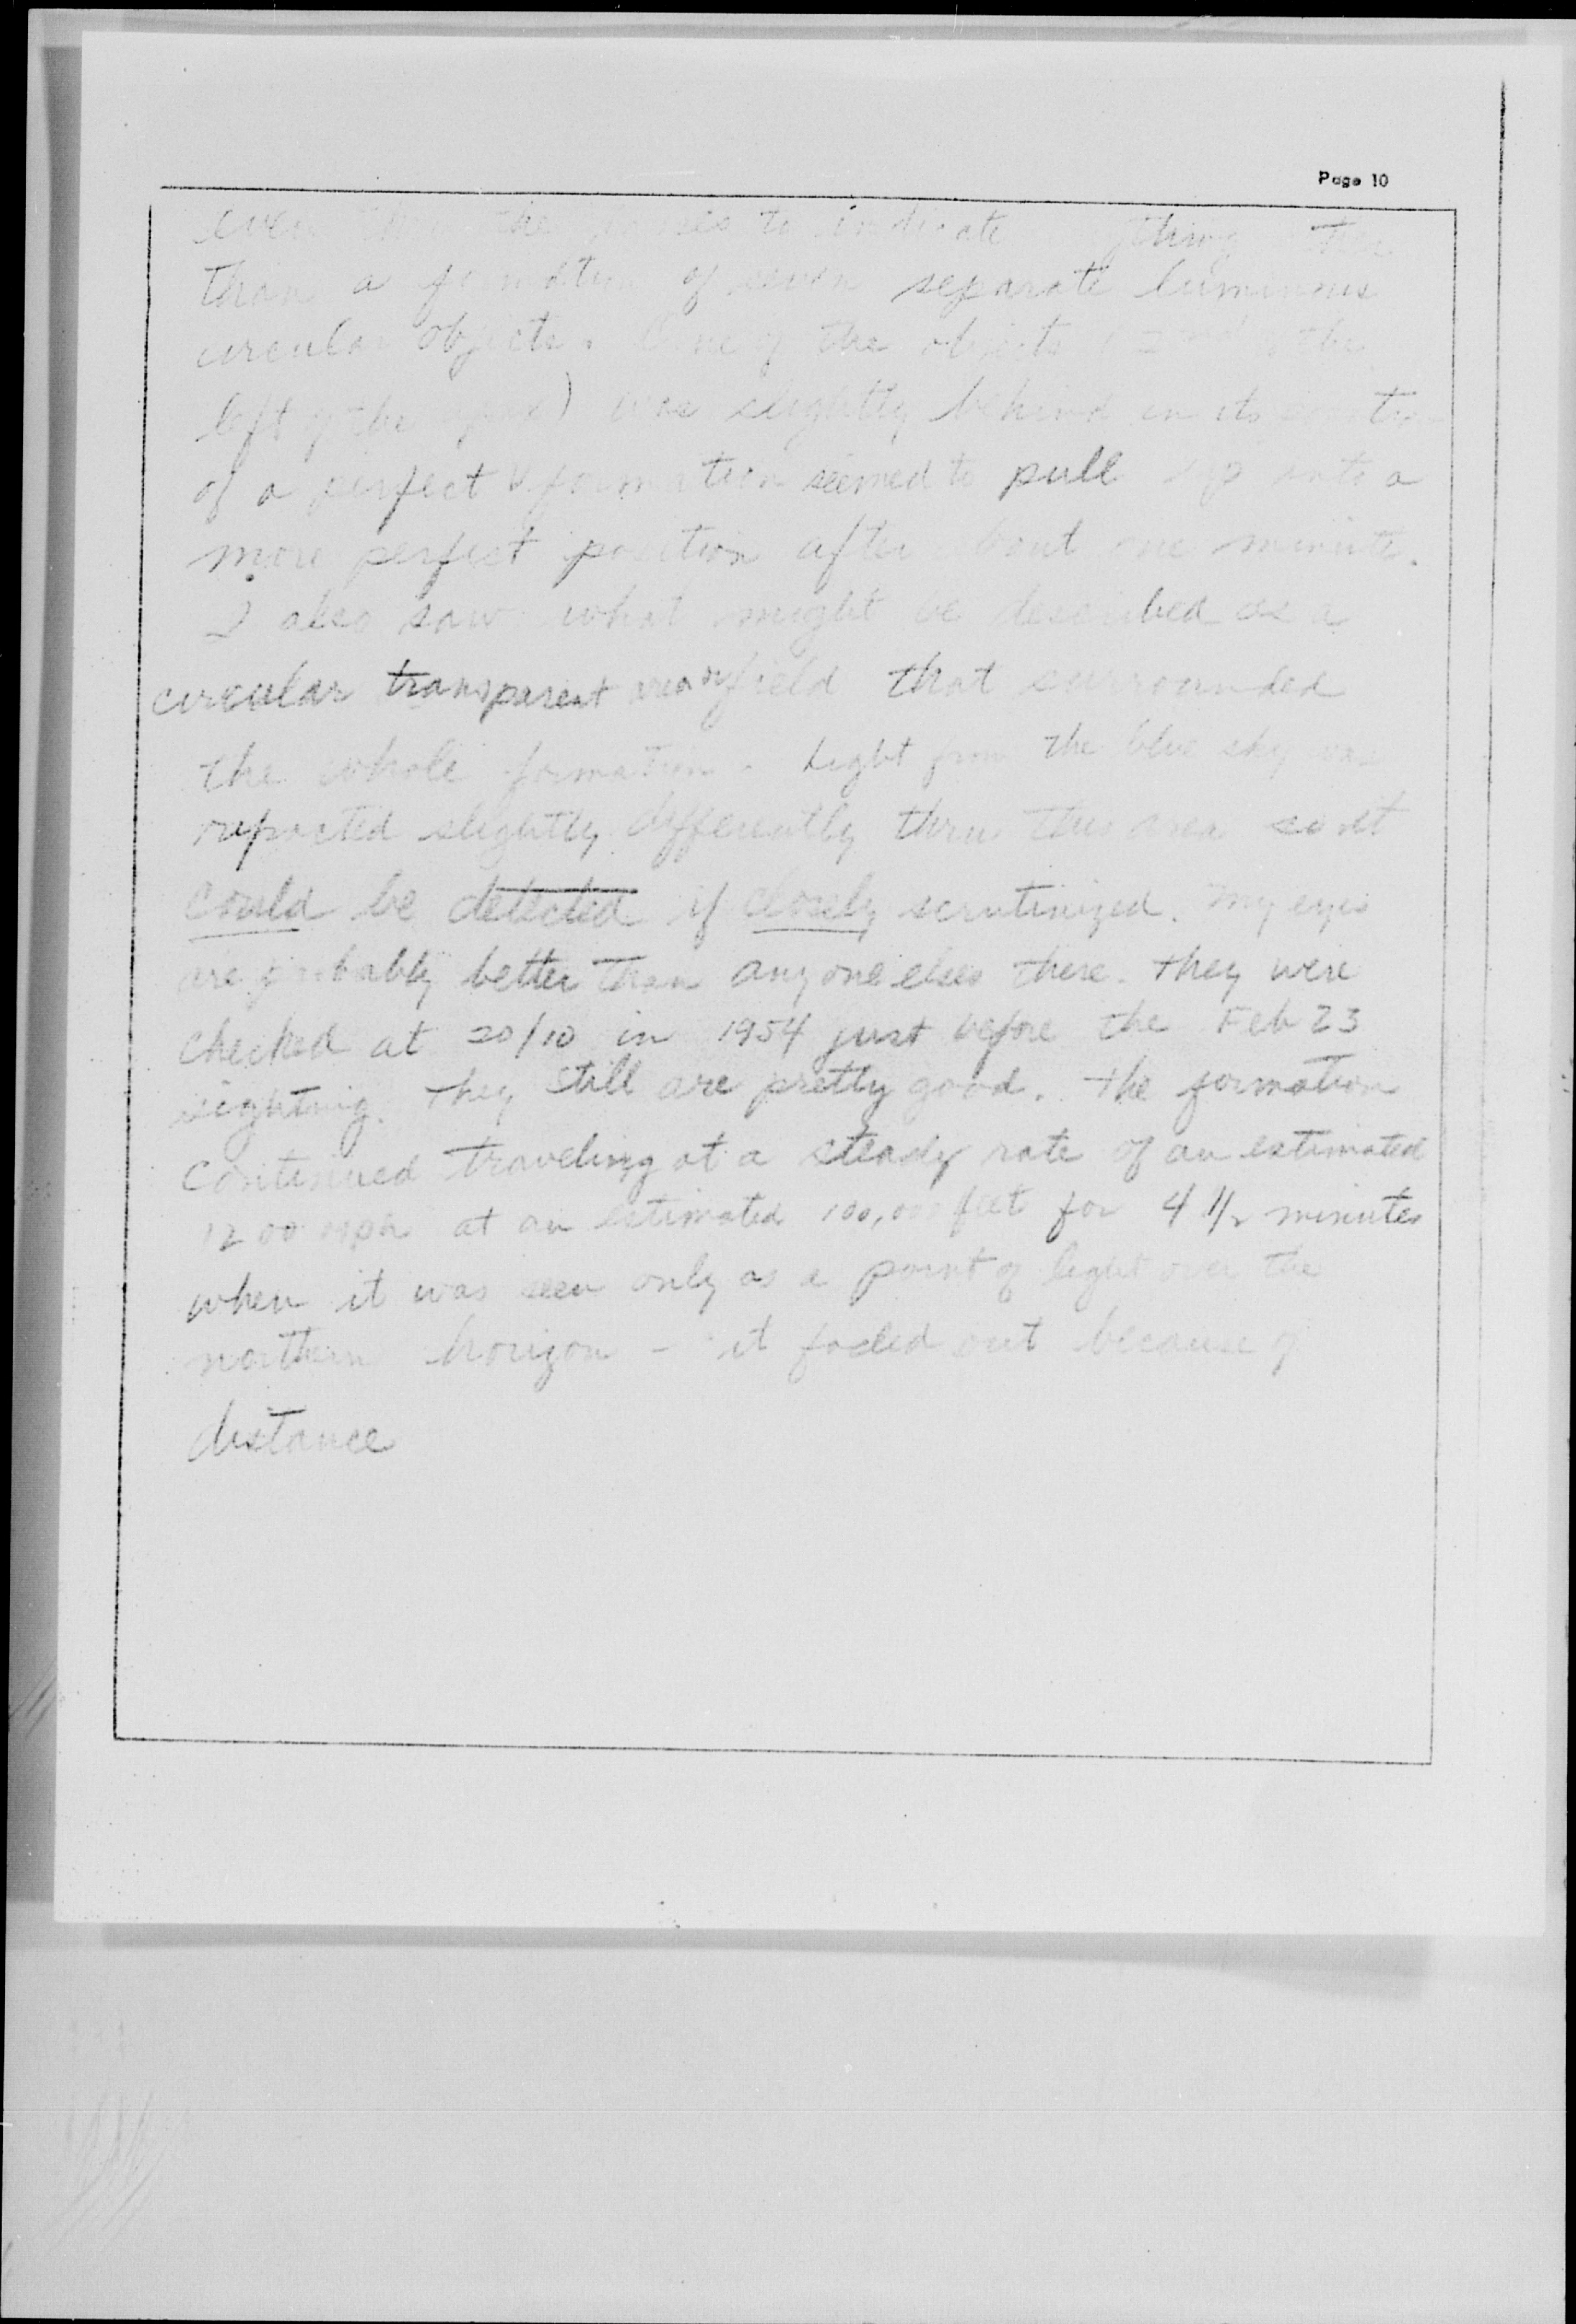 Page 10
even the to indicate
than a formation of seven separate luminous
circular objects. One of the objects (2nd the
left of the apex) was slightly behind in its
of a perfect V formation seemed to pull up into a
more perfect position after about one minute.
I also saw what might be described as a
circular transparent area or field that surrounded
the whole formation. Light from the blue sky was
refracted slightly differently thru this area so it
could be detected if closely scrutinized. My eyes
are probably better than anyone elses there. They were
checked at 20/10 in 1954 just before the Feb 23
sighting. They still are pretty good. The formation
continued traveling at a steady rate of an estimated
1200 mph at an estimated 100,000 feet for 4 1/2 minutes
when it was seen only as a point of light over the
northern horizon - it faded out because of
distance